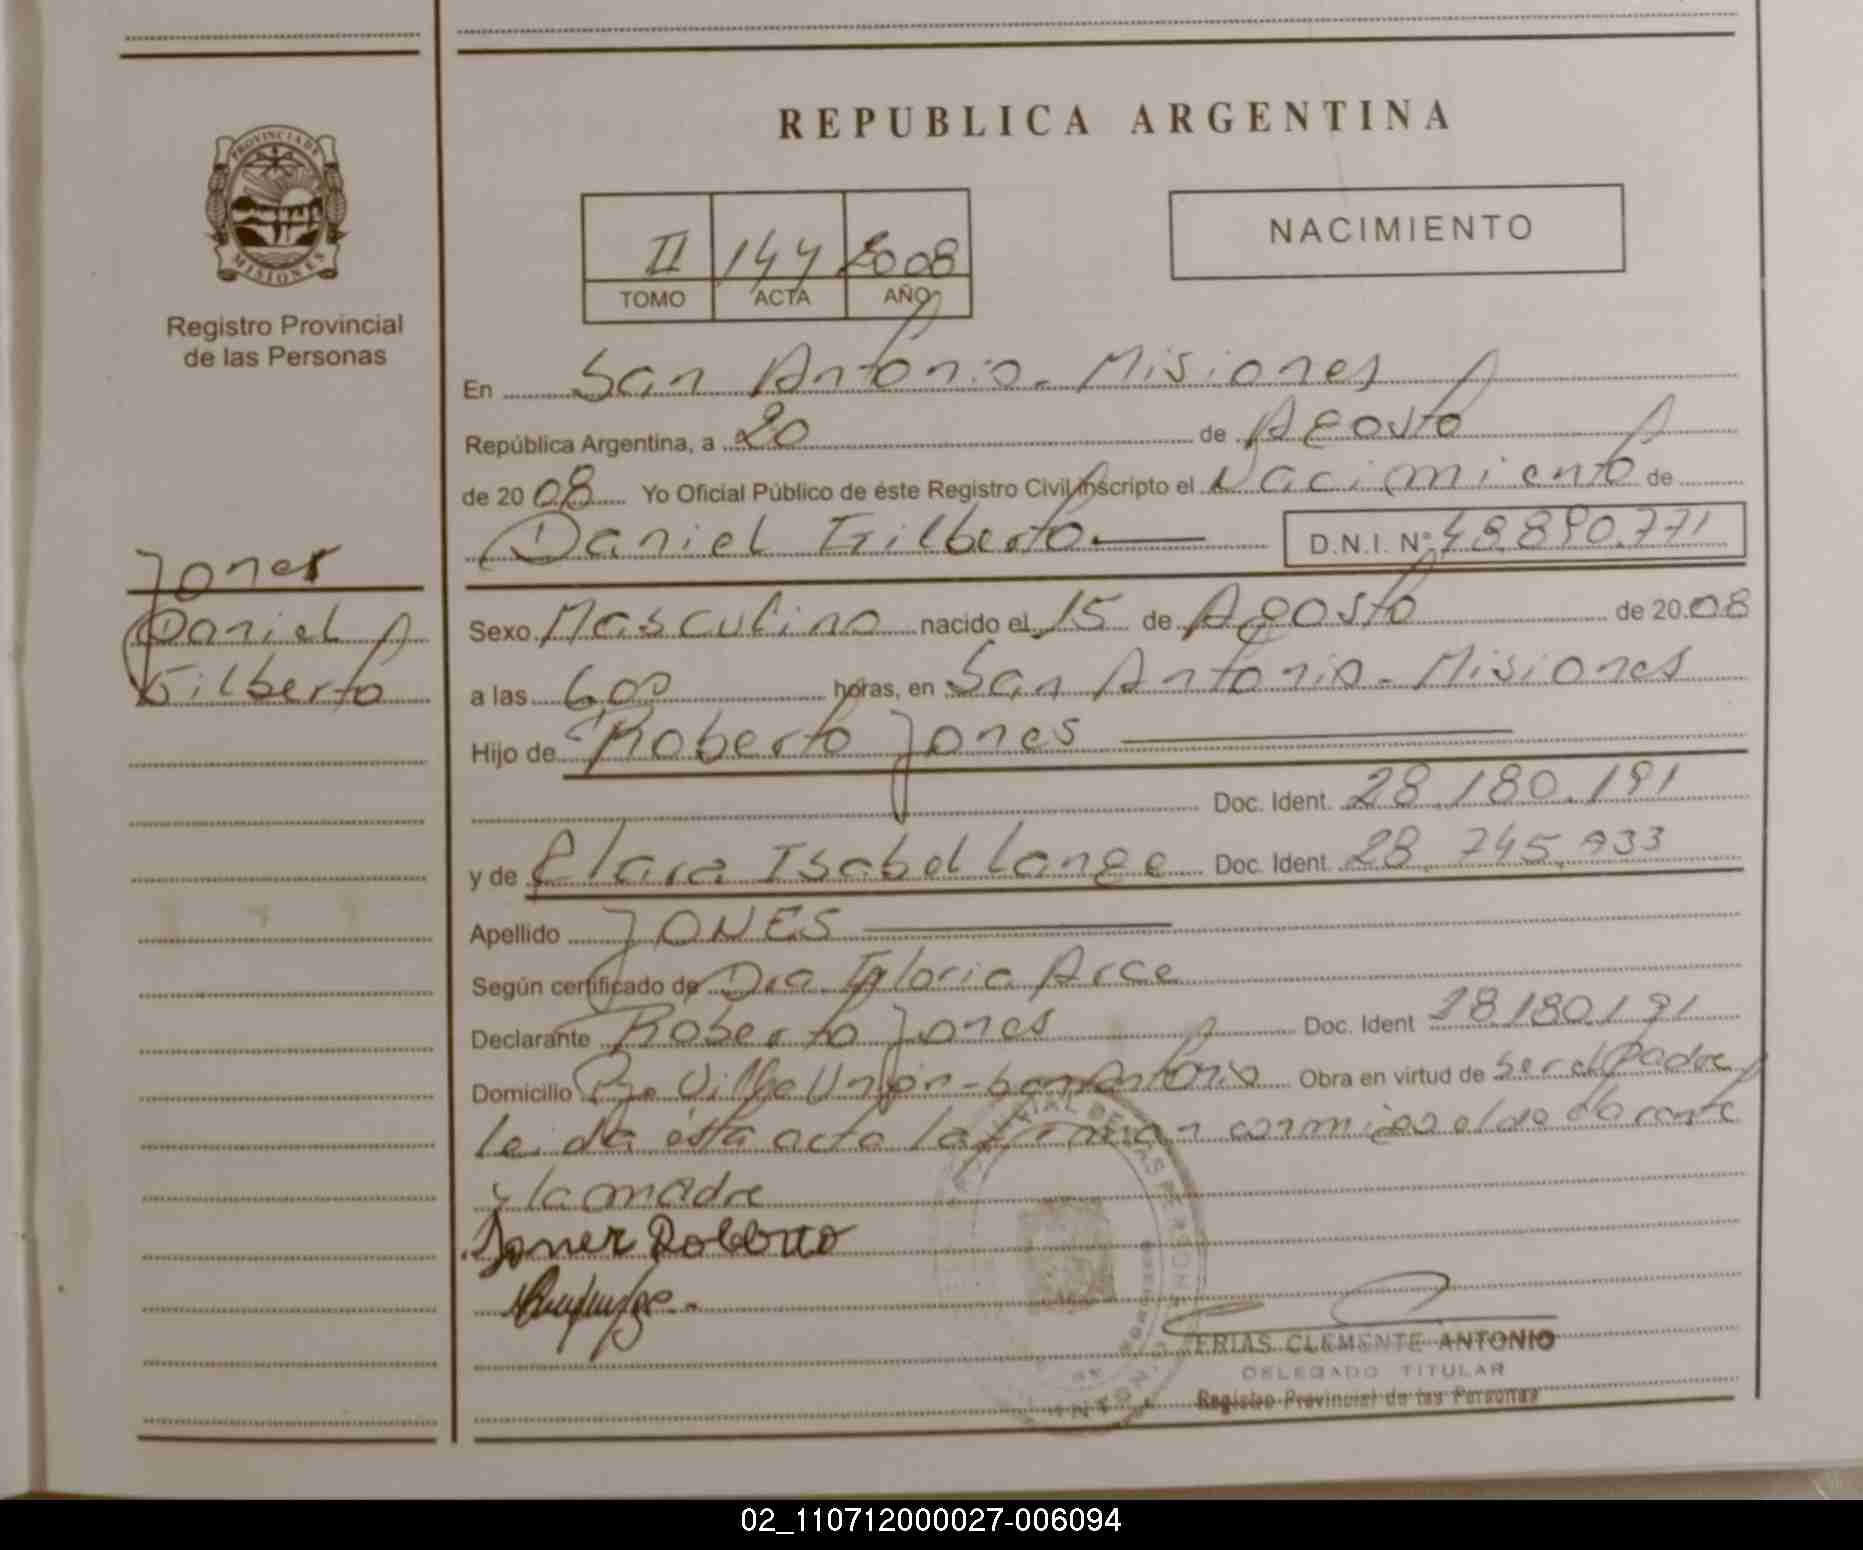 REPUBLICA ARGENTINA
PROVINCIA DE MISIONES
Registro Provincial
de las Personas
NACIMIENTO
II 144 2008
TOMO ACTA AÑO
En San Antonio - Misiones
República Argentina, a 20 de Agosto
de 2008 Yo Oficial Público de éste Registro Civil inscripto el Nacimiento de
Daniel Gilberto D.N.I. Nº 48.890.771
Jones
Daniel
Gilberto
Sexo Masculino nacido el 15 de Agosto de 2008
a las 6,00 horas, en San Antonio - Misiones
Hijo de Roberto Jones
Doc. Ident. 28.180.191
y de Clara Isabel Lange Doc. Ident. 28.745.933
Apellido JONES
Según certificado de Dra. Gloria Arce
Declarante Roberto Jones Doc. Ident 28.180.191
Domicilio Unión - San Antonio Obra en virtud de ser el Padre
Leída ésta acta la firman conmigo el declarante
y la madre
Jones Roberto
FRIAS CLEMENTE ANTONIO
DELEGADO TITULAR
Registro Provincial de las Personas
02_110712000027-006094